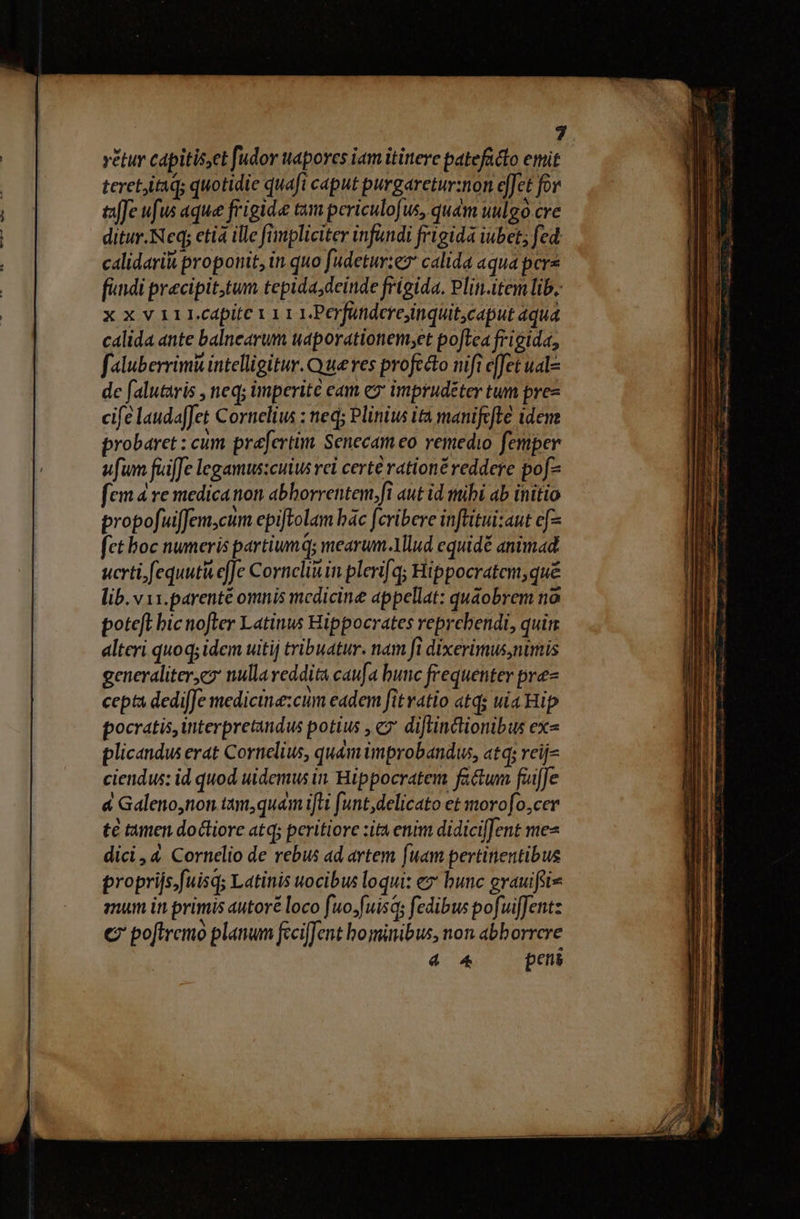 7
rētur capitis,et ſudor uapores iam itinere patefacto emit
teret,itaq; quotidie quaſi caput purgaretur:non eſſet for
taſſe uſus aquæ frigidæ tam periculoſus, quàm uulgò cre
ditur.Neq; etiā ille ſimpliciter infundi frigidā iubet; ſed
calidariū proponit, in quo ſudetur:& calida aqua per=
fundi præcipit,tum tepida,deinde frigida. Plin.item lib.
X X V I I I.capite I I I I.Perfundere,inquit,caput aqua
calida ante balnearum uaporationem,et poſtea frigida,
ſaluberrimū intelligitur. Quæ res profecto niſi eſſet ual=
de ſalutaris , neq; imperitè eam & imprudēter tum præ=
ciſè laudaſſet Cornelius : neq; Plinius ita manifeſtè idem
probaret : cùm præſertim Senecam eo remedio ſemper
uſum fuiſſe legamus:cuius rei certè rationē reddere poſ=
ſem à re medica non abhorrentem,ſi aut id mihi ab initio
propoſuiſſem,cùm epiſtolam hāc ſcribere inſtitui:aut eſ=
ſet hoc numeris partiumq; mearum.Illud equidē animad
uerti,ſequutū eſſe Corneliū in pleriſq; Hippocratem,quē
lib. VII.parentē omnis medicinæ appellat: quāobrem nō
poteſt hic noſter Latinus Hippocrates reprehendi, quin
alteri quoq; idem uitij tribuatur. nam ſi dixerimus,nimis
generaliter,& nulla reddita cauſa hunc frequenter præ=
cepta dediſſe medicinæ:cùm eadem ſit ratio atq; uia Hip
pocratis, interpretandus potius , & diſtinctionibus ex=
plicandus erat Cornelius, quàm improbandus, atq; reij=
ciendus: id quod uidemus in Hippocratem factum fuiſſe
à Galeno,non tam,quàm iſti ſunt,delicato et moroſo,cer
tè tamen doctiore atq; peritiore :ita enim didiciſſent me=
dici , à Cornelio de rebus ad artem ſuam pertinentibus
proprijs,ſuisq; Latinis uocibus loqui: & hunc grauiſsi=
mum in primis autorē loco ſuo,ſuisq; ſedibus poſuiſſent:
& poſtremò planum feciſſent hominibus, non abhorrere
a 4 peni